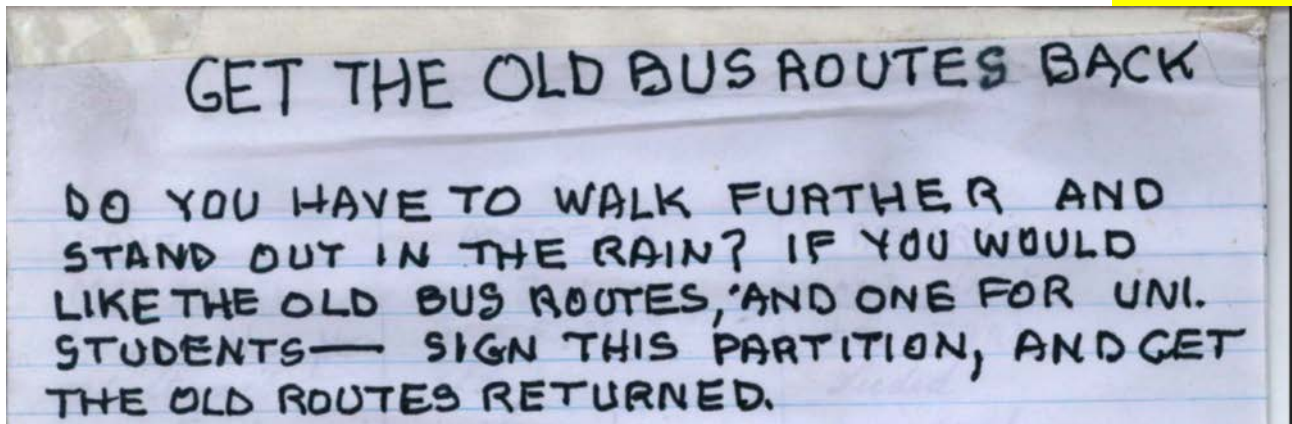 GET THE OLD BUS ROUTES BACK
DO YOU HAVE TO WALK FURTHER AND
STAND OUT IN THE RAIN? IF YOU WOULD
LIKE THE OLD BUS ROUTES, AND ONE FOR UNI.
STUDENTS— SIGN THIS PARTITION, AND GET
THE OLD ROUTES RETURNED.